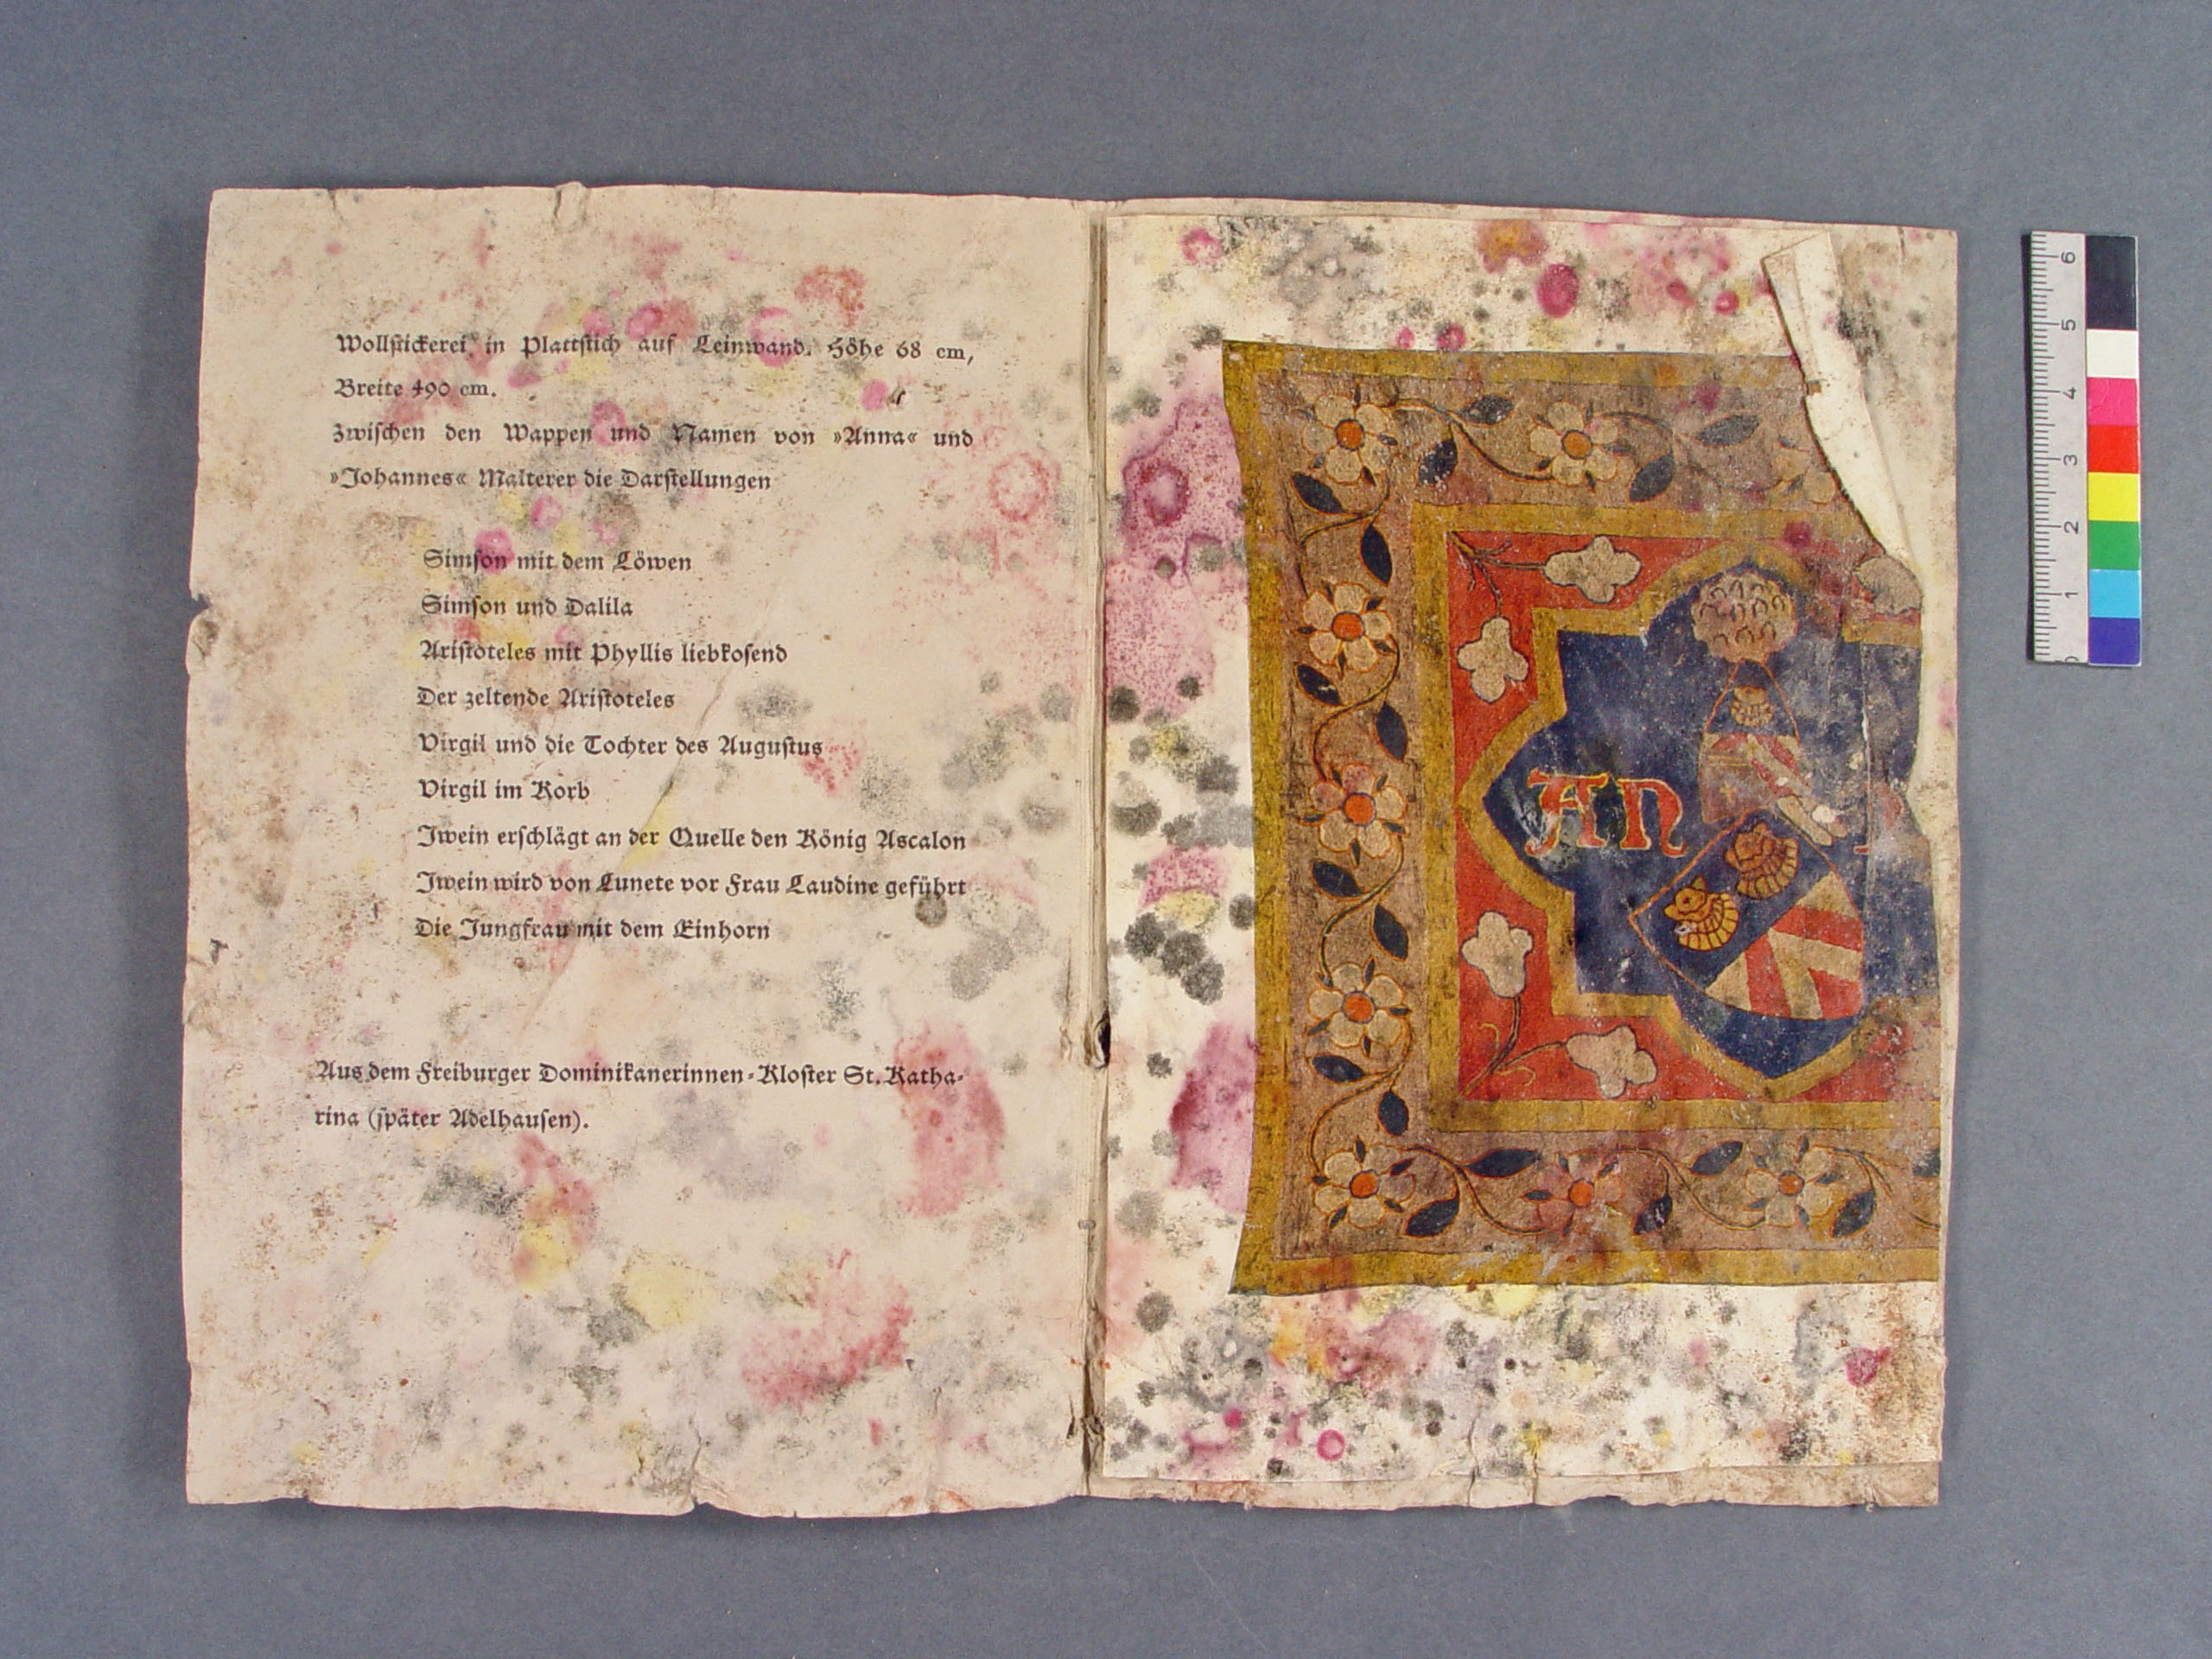 Wollstickerei in Plattstich auf Leinwand. Höhe 68 cm,
Breite 490 cm.
Zwischen den Wappen und Namen von »Anna« und
»Johannes« Malterer die Darstellungen
Simson mit dem Löwen
Simson und Dalila
Aristoteles mit Phyllis liebkosend
Der zeltende Aristoteles
Virgil und die Tochter des Augustus
Virgil im Korb
Iwein erschlägt an der Quelle den König Ascalon
Iwein wird von Lunete vor Frau Laudine geführt
Die Jungfrau mit dem Einhorn
Aus dem Freiburger Dominikanerinnen-Kloster St. Katha-
rina (später Adelhausen).
AN
6
5
4
3
2
1
0